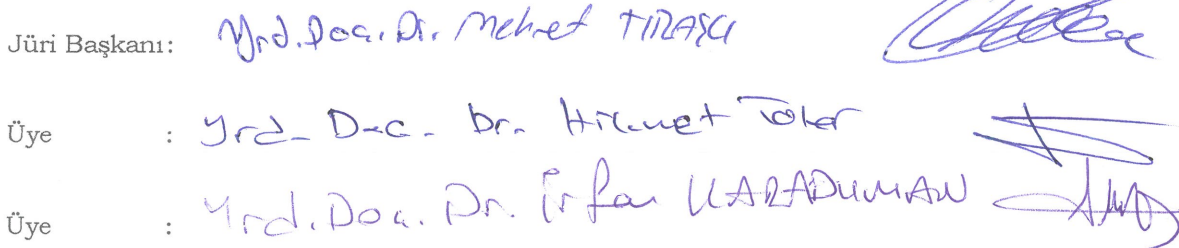 Jüri Başkanı: Yrd. Doç. Dr. Mehmet TIRAŞCI
Üye : Yrd. Doç. Dr. Hikmet Toker
Üye : Yrd. Doç. Dr. İrfan KARADUMAN